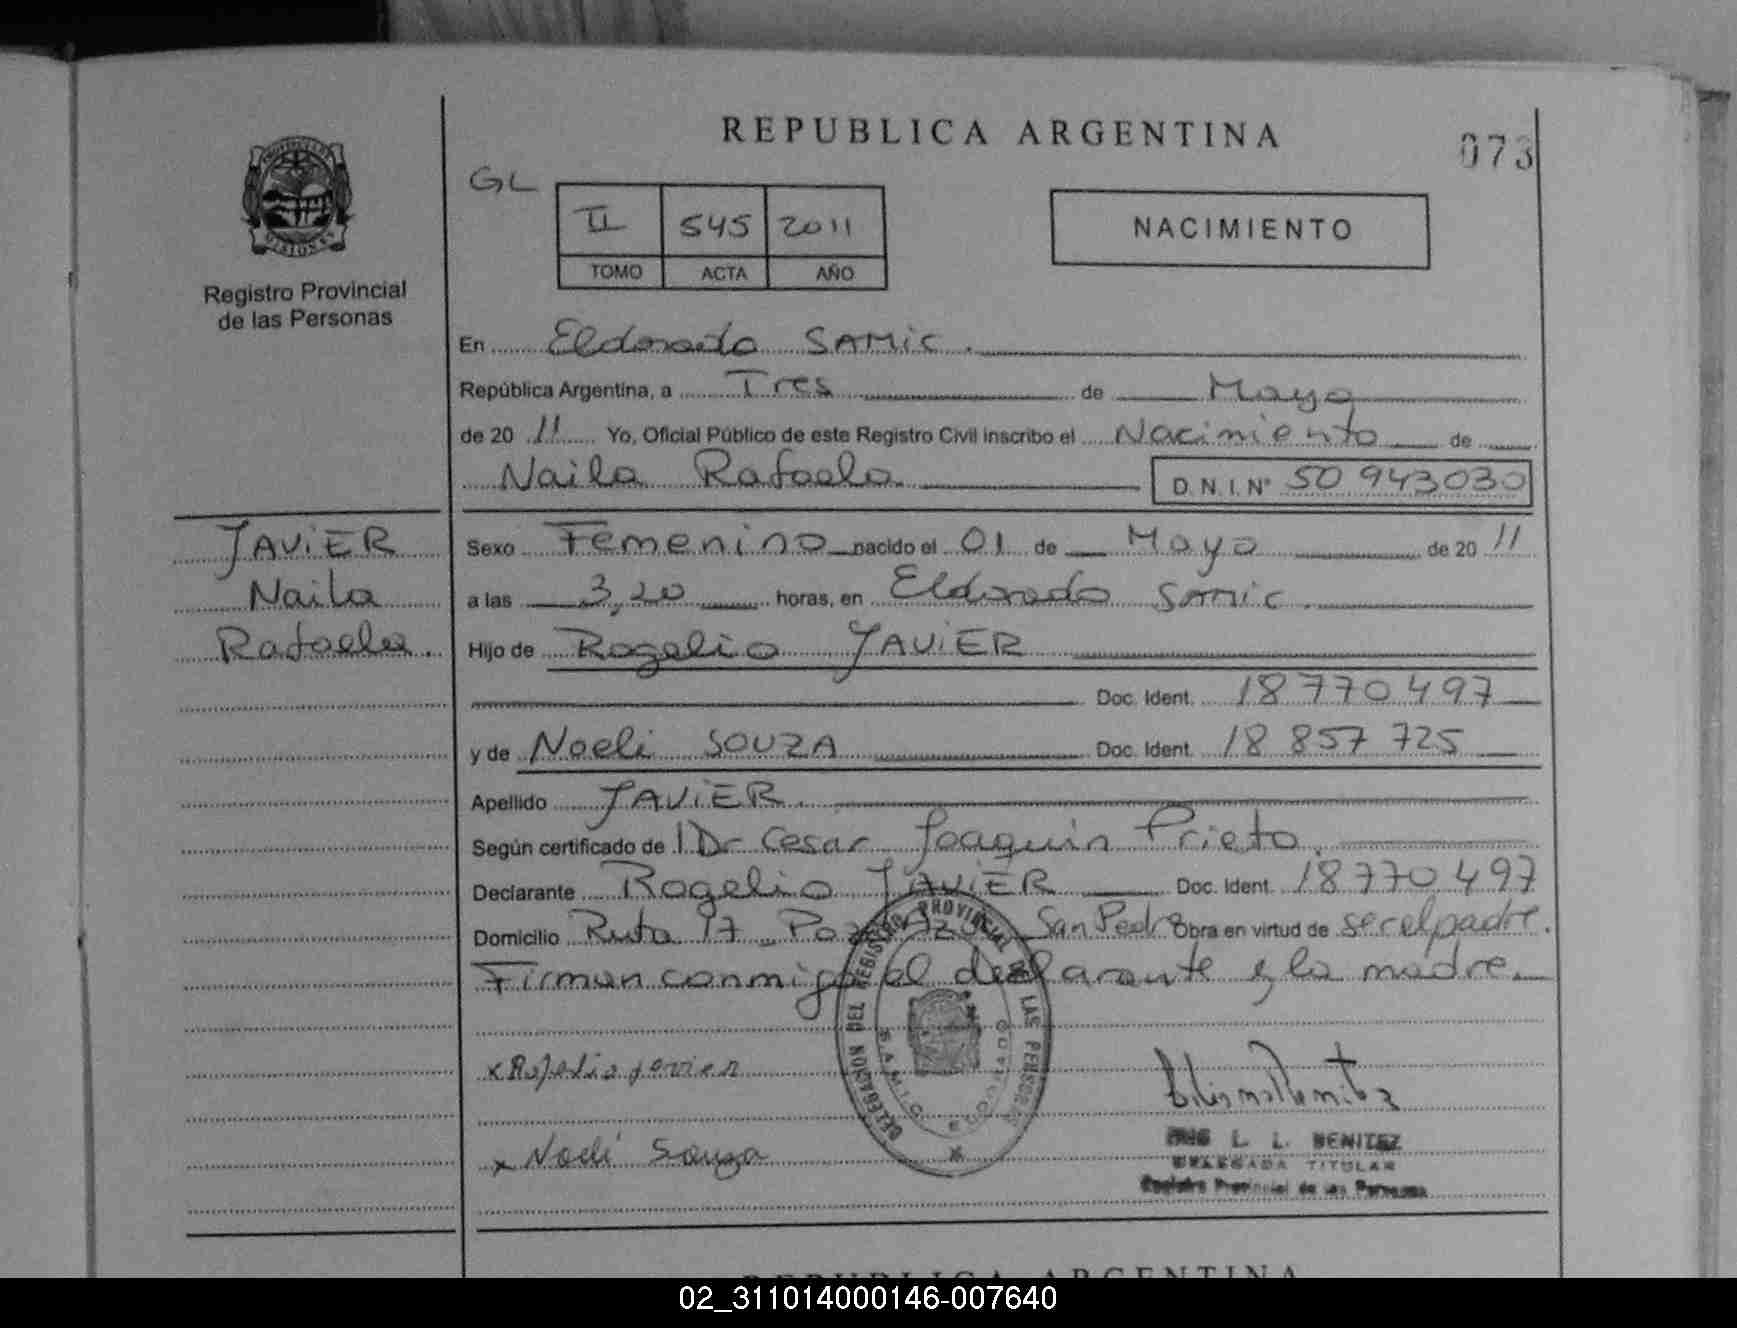 REPUBLICA ARGENTINA
073
GL
II 545 2011
TOMO ACTA AÑO
NACIMIENTO
PROVINCIA DE MISIONES
Registro Provincial
de las Personas
En Eldorado SAMIC.
República Argentina, a Tres de Mayo
de 2011 Yo, Oficial Público de este Registro Civil inscribo el Nacimiento de
Naila Rafaela D.N.I.N° 50 943030
JAVIER
Naila
Rafaela.
Sexo Femenino nacido el 01 de Mayo de 2011
a las 3,20 horas, en Eldorado SAMIC.
Hijo de Rogelio JAVIER
Doc. Ident. 18 770 497
y de Noeli SOUZA Doc. Ident. 18 857 725
Apellido JAVIER.
Según certificado de Dr Cesar Joaquin Prieto.
Declarante Rogelio JAVIER Doc. Ident. 18 770 497
Domicilio Ruta 17 Pozo Azul San Pedro Obra en virtud de ser el padre.
Firman conmigo el declarante y la madre.
DELEGACION DEL REGISTRO PROVINCIAL DE LAS PERSONAS
SAMIC ELDORADO
x Rogelio javier
x Noeli Souza
L. L. BENITEZ
DELEGADA TITULAR
Registro Provincial de las Personas
REPUBLICA ARGENTINA
02_311014000146-007640